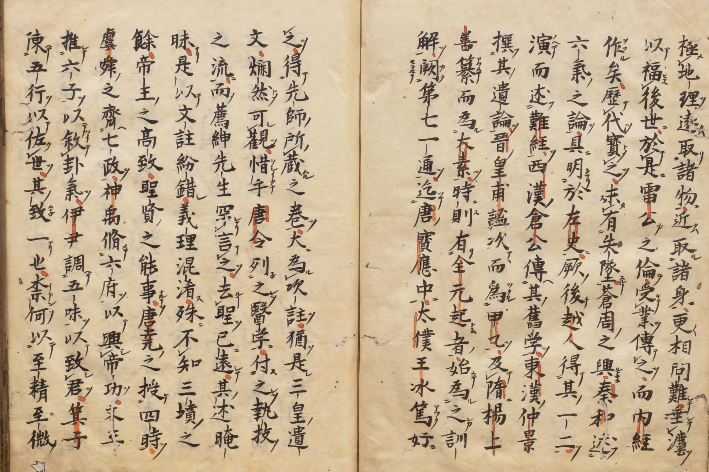 極地理遠取諸物近取諸身更相問難垂灋
以福後世於是雷公之倫受業傳之而內經
作矣歷代寶之未有失墜蒼周之興秦和述
六氣之論具明於左史厥後越人得其一二
演而述難經西漢倉公傳其舊学東漢仲景
撰其遺論晉皇甫謐次而為甲乙及隋楊上
善纂而為太素時則有全元起者始為之訓
解闕第七一通迄唐寶應中太僕王冰篤好
之得先師所蔵之卷大為次註猶是三皇遺
文爛然可觀惜乎唐令列之醫学付之執技
之流而薦紳先生罕言之去聖已遠其述晻
昧是以文註紛錯義理混淆殊不知三墳之
餘帝王之高致聖賢之能事唐堯之授四時
虞舜之齊七政神禹脩六府以興帝功文王
推六子以敘卦氣伊尹調五味以致君箕子
陳五行以佐世其致一也柰何以至精至微